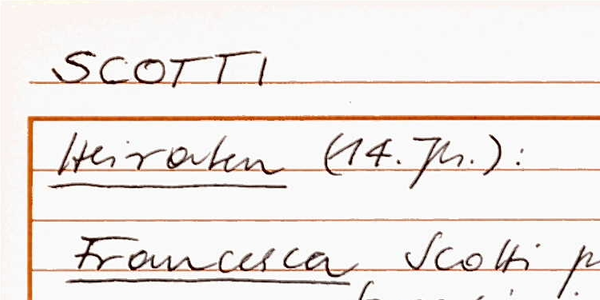 SCOTTI
Heiraten (14. Jh.):
Francesca Scotti